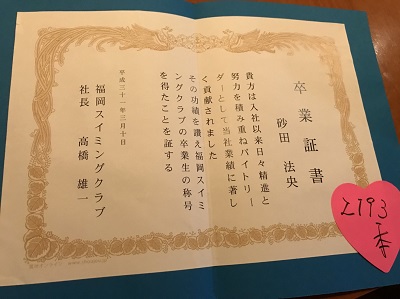 卒業証書
砂田 法央
貴方は入社以来日々精進と
努力を積み重ねバイトリー
ダーとして当社業績に著し
く貢献されました
その功績を讃え福岡スイミ
ングクラブの卒業生の称号
を得たことを証する
平成三十一年三月十日
福岡スイミングクラブ
社長 高橋 雄一